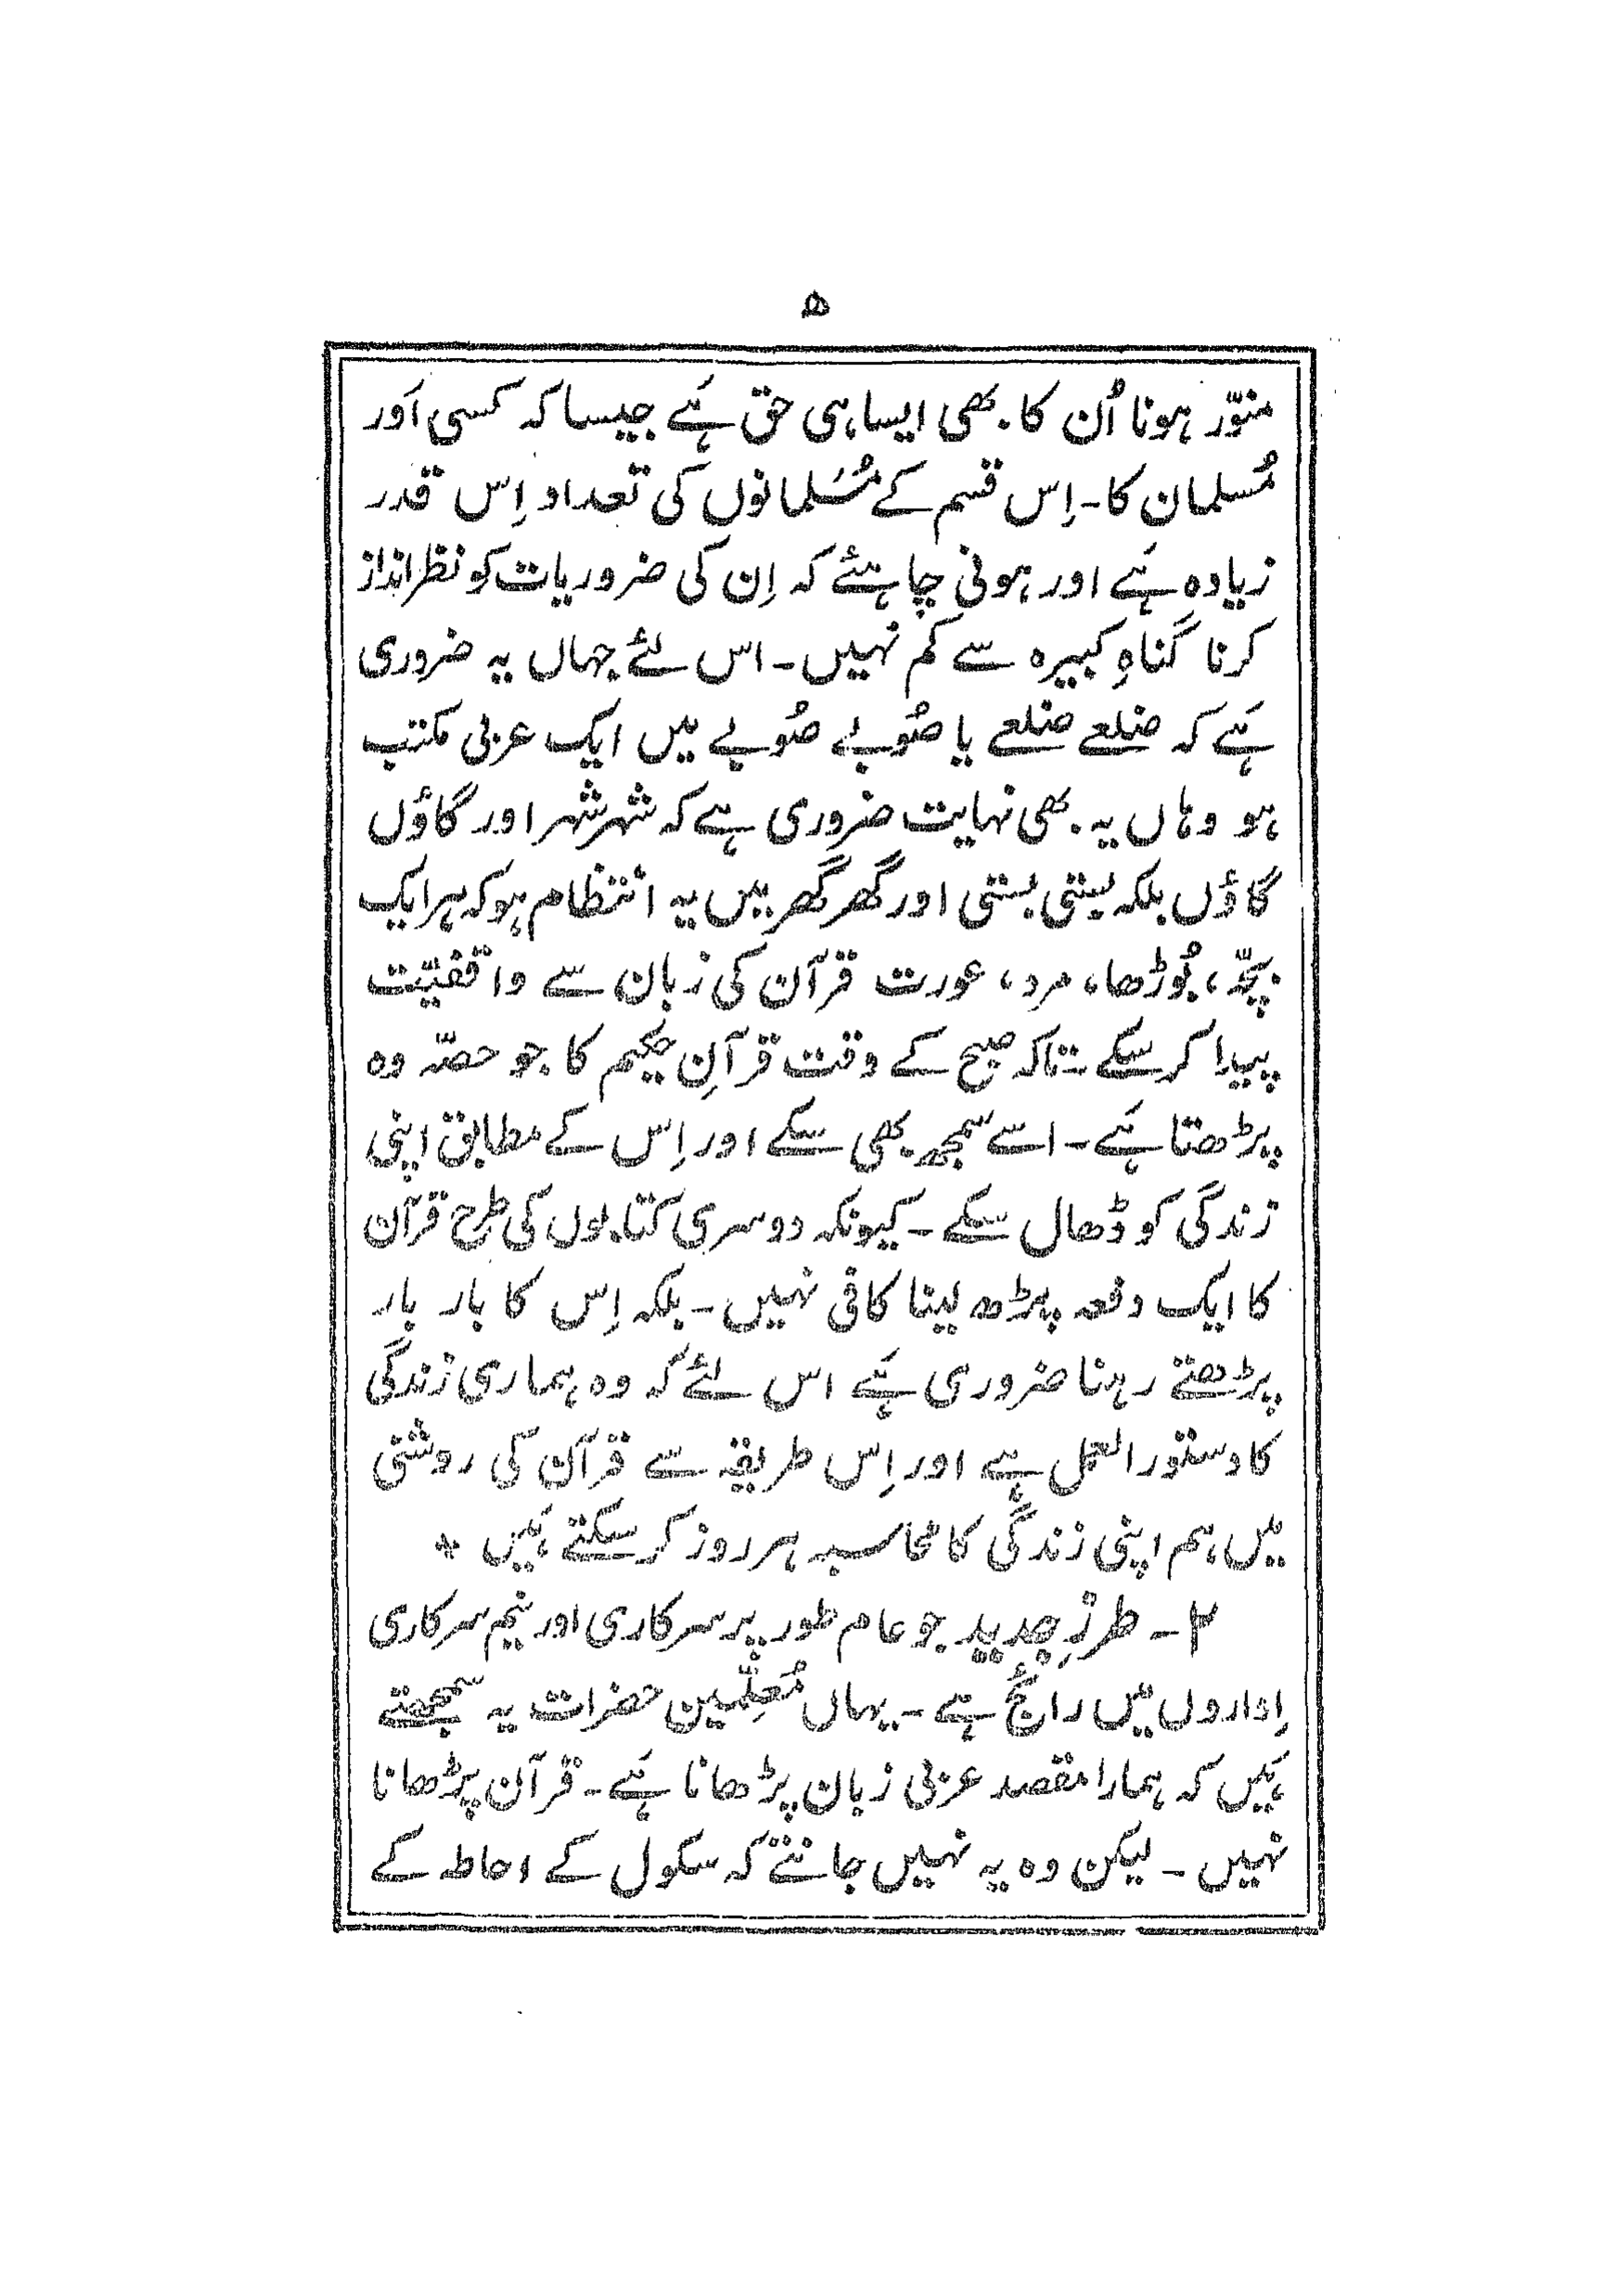 ھ
منوّر ہونا اُن کا بھی ایسا ہی حق ہَے جیسا کہ کسی اَور
مُسلمان کا۔ اِس قسم کے مُسَلمانوں کی تعداد اِس قدر
زیادہ ہَے اور ہونی چاہئے کہ اِن کی ضروریات کو نظر انداز
کرنا گناہِ کبیرہ سے کم نہیں۔ اس لئے جہاں یہ ضروری
ہَے کہ ضلعے ضلعے یا صُوبے صُوبے میں ایک عربی مکتب
ہو وہاں یہ بھی نہایت ضروری ہے کہ شہر شہر اور گاؤں
گاؤں بلکہ بستی بستی اور گھر گھر میں یہ انتظام ہو کہ ہر ایک
بچّہ، بُوڑھا، مرد، عورت قرآن کی زبان سے واقفیّت
پیدا کر سکے۔ تاکہ صبح کے وقت قرآنِ حکیم کا جو حصّہ وہ
پڑھتا ہَے۔ اسے سمجھ بھی سکے اور اِس کے مطابق اپنی
زندگی کو ڈھال سکے۔ کیونکہ دوسری کتابوں کی طرح قرآن
کا ایک دفعہ پڑھ لینا کافی نہیں۔ بلکہ اِس کا بار بار
پڑھتے رہنا ضروری ہَے اس لئے کہ وہ ہماری زندگی
کا دستور العمل ہے اور اِس طریقہ سے قرآن کی روشنی
میں ہم اپنی زندگی کا محاسبہ ہر روز کر سکتے ہَیں *
۲۔ طرزِ جدید جو عام طور پر سرکاری اور نیم سرکاری
اِداروں میں رائج ہے۔ یہاں مُعلِّمین حضرات یہ سمجھتے
ہَیں کہ ہمارا مقصد عربی زبان پڑھانا ہَے۔ قرآن پڑھانا
نہیں۔ لیکن وہ یہ نہیں جانتے کہ سکول کے احاطہ کے